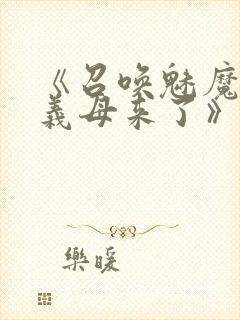 《召唤魅魔
義母来了》
樂暖